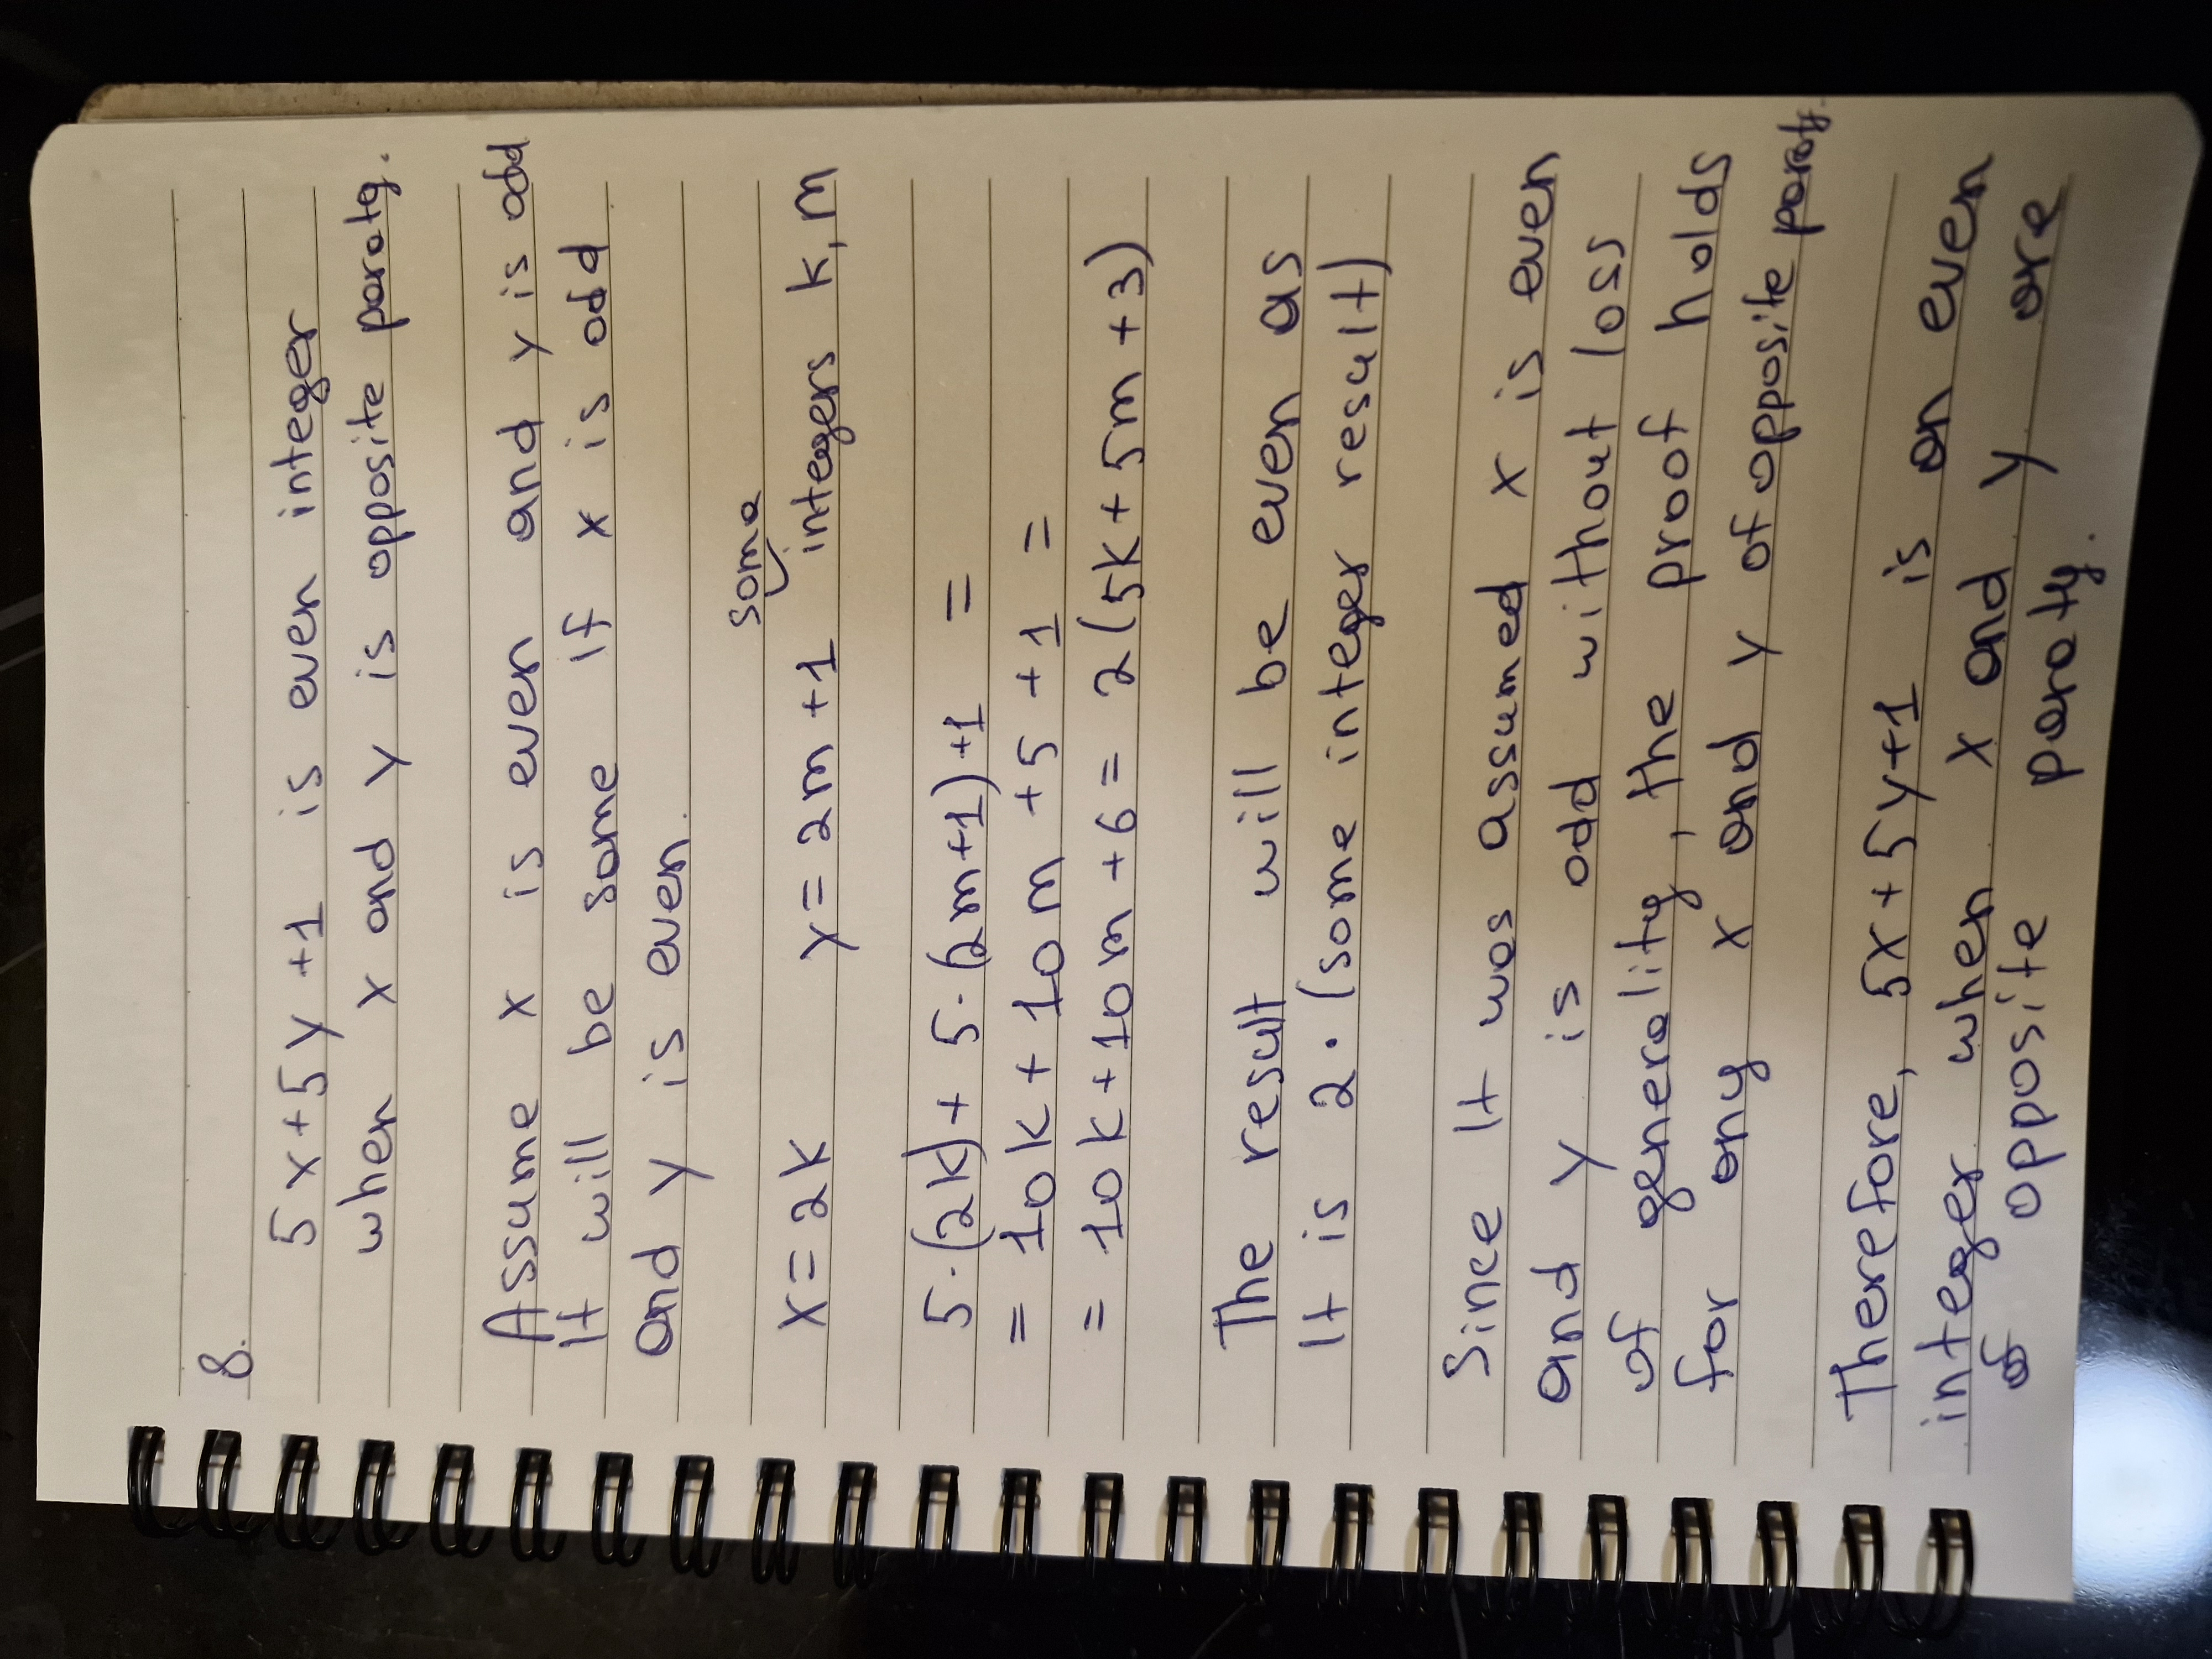 8.
5x+5y+1 is even integer
when x and y is opposite paraty.
Assume x is even and y is odd
It will be same if x is odd
and y is even.
some
x=2k y=2m+1 integers k, m
5·(2k)+ 5·(2m+1)+1 =
= 10k+10m+5+1 =
= 10k+10m+6= 2(5k+5m+3)
The result will be even as
It is 2·(some integer result)
Since It was assumed x is even
and y is odd without loss
of generality, the proof holds
for any x and y of opposite paraty.
Therefore, 5x+5y+1 is an even
integer when x and y are
of opposite paraty.